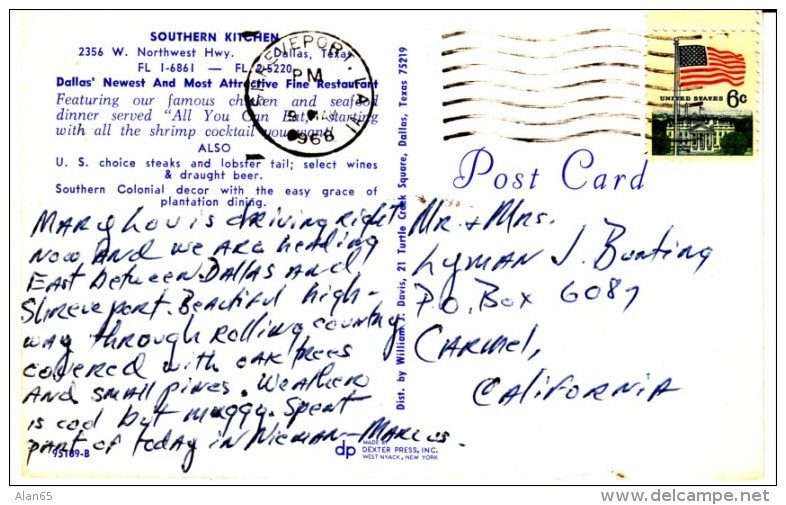 SOUTHERN KITCHEN
2356 W. Northwest Hwy. Dallas, Texas
FL 1-6861 — FL 2-5220
Dallas' Newest And Most Attractive Fine Restaurant
Featuring our famous chicken and seafood
dinner served "All You Can Eat," starting
with all the shrimp cocktail you want!
ALSO
U. S. choice steaks and lobster tail; select wines
& draught beer.
Southern Colonial decor with the easy grace of
plantation dining.
Mary Lou is driving right
now and we are heading
East between Dallas and
Shreveport. Beautiful high-
way through rolling country
covered with oak trees
and small pines. Weather
is cool but muggy. Spent
part of today in Nieman-Marcus.
95189-B
SHREVEPORT, LA
PM
1968
Dist. by William J. Davis, 21 Turtle Creek Square, Dallas, Texas 75219
dp
MADE BY
DEXTER PRESS, INC.
WEST NYACK, NEW YORK
UNITED STATES 6c
Post Card
Mr. + Mrs.
Lyman J. Bunting
P.O. Box 6087
Carmel,
California
Alan65
© delcampe.net